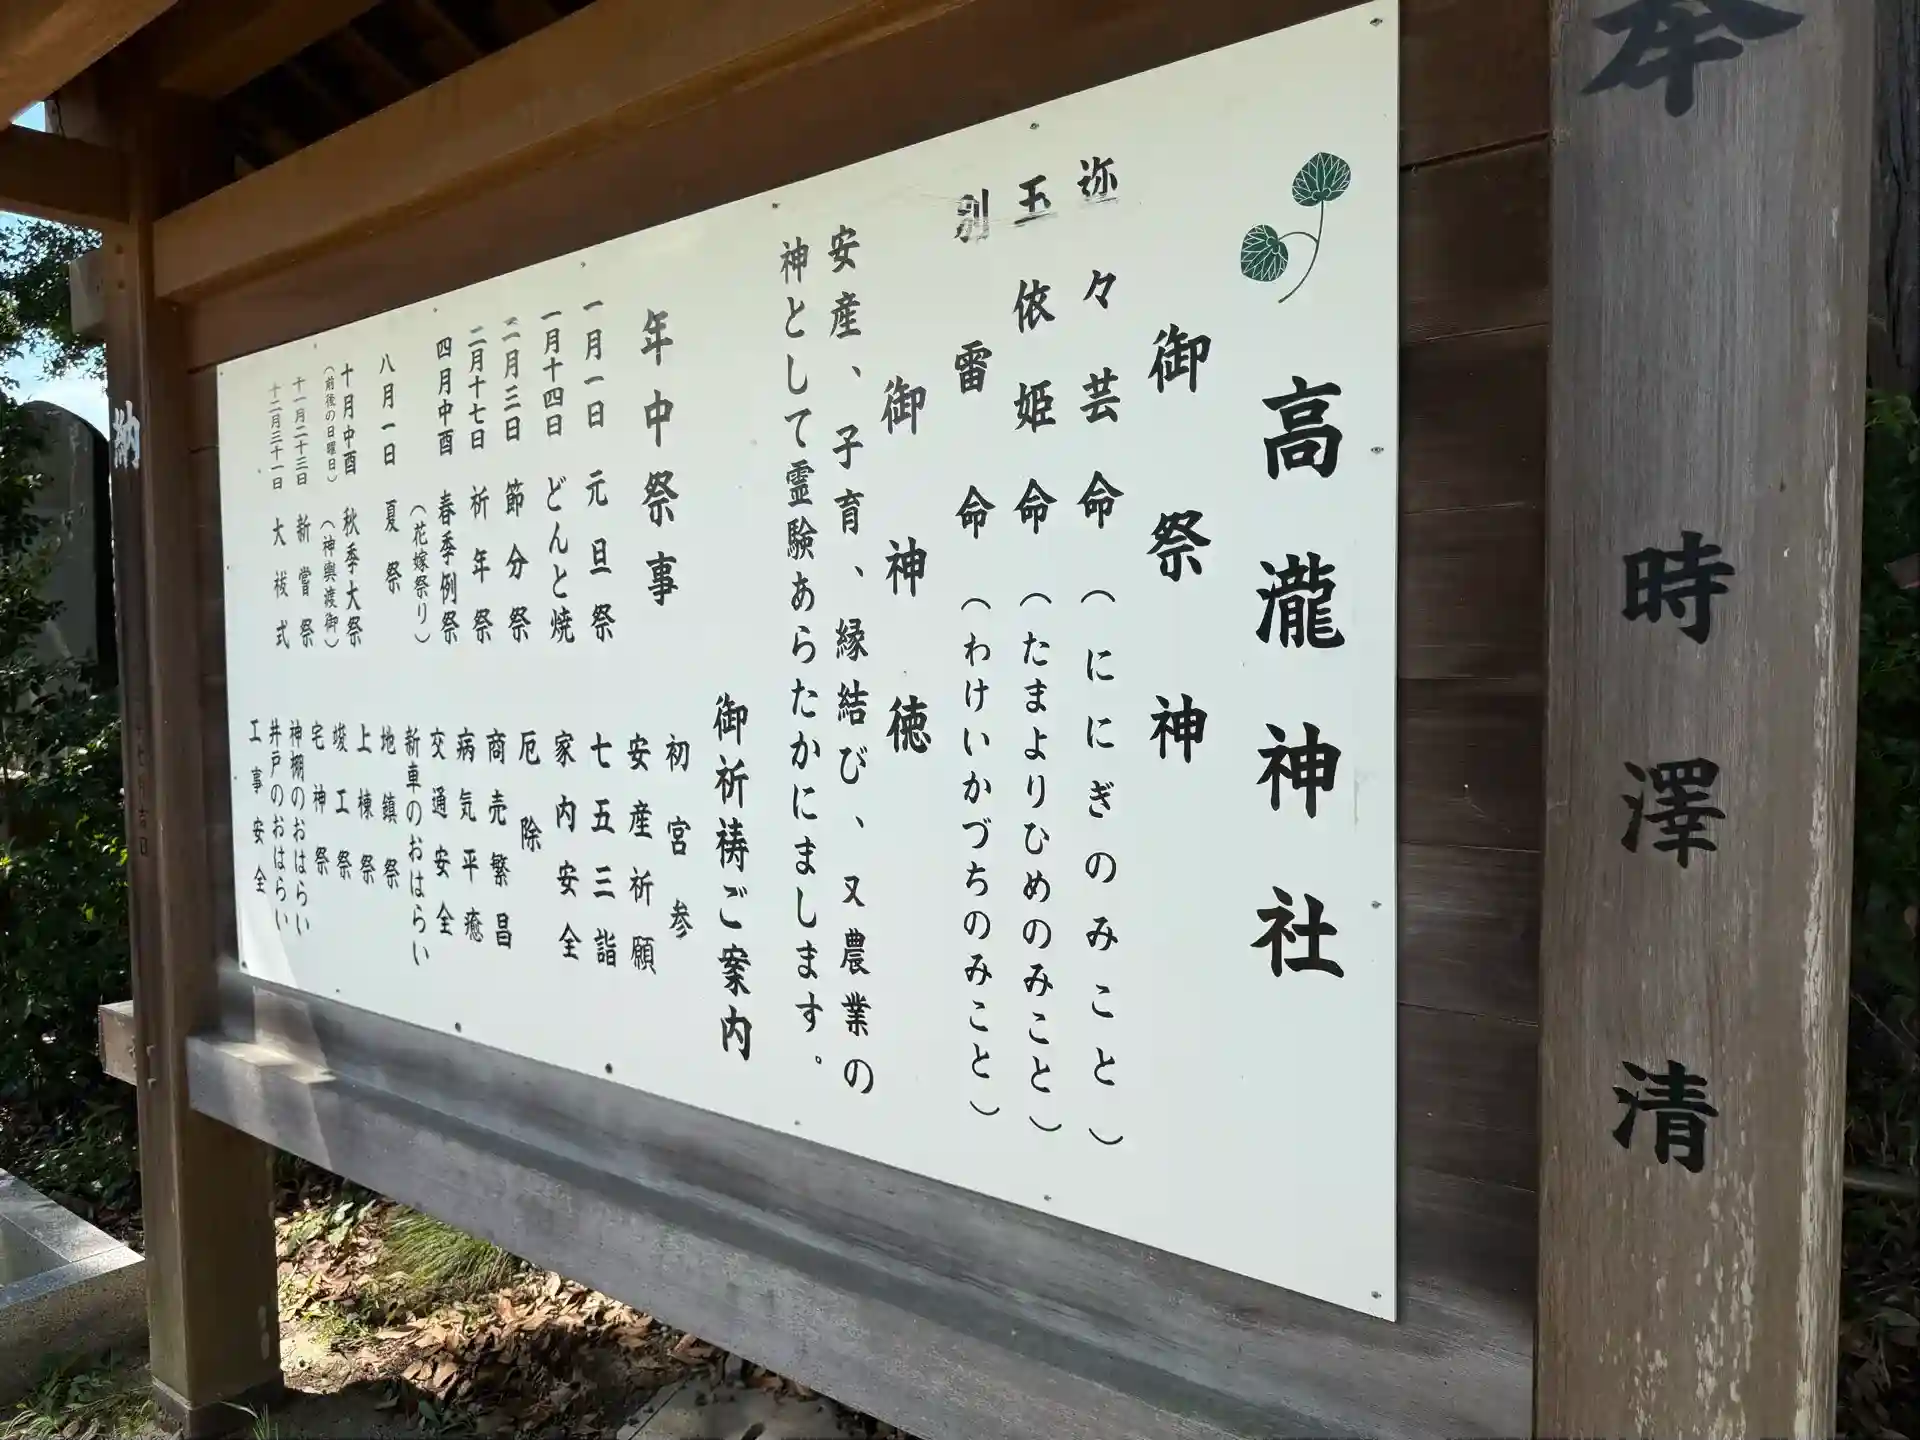 奉
時澤清
高瀧神社
御祭神
迩々芸命（ににぎのみこと）
玉依姫命（たまよりひめのみこと）
別雷命（わけいかづちのみこと）
御神徳
安産、子育、縁結び、又農業の
神として霊験あらたかにまします。
年中祭事
一月一日 元旦祭
一月十四日 どんと焼
二月三日 節分祭
二月十七日 祈年祭
四月中酉 春季例祭
（花嫁祭り）
八月一日 夏祭
十月中酉 秋季大祭
（前後の日曜日）（神輿渡御）
十一月二十三日 新嘗祭
十二月三十一日 大祓式
御祈祷ご案内
初宮参
安産祈願
七五三詣
家内安全
厄除
商売繁昌
病気平癒
交通安全
新車のおはらい
地鎮祭
上棟祭
竣工祭
宅神祭
神棚のおはらい
井戸のおはらい
工事安全
納